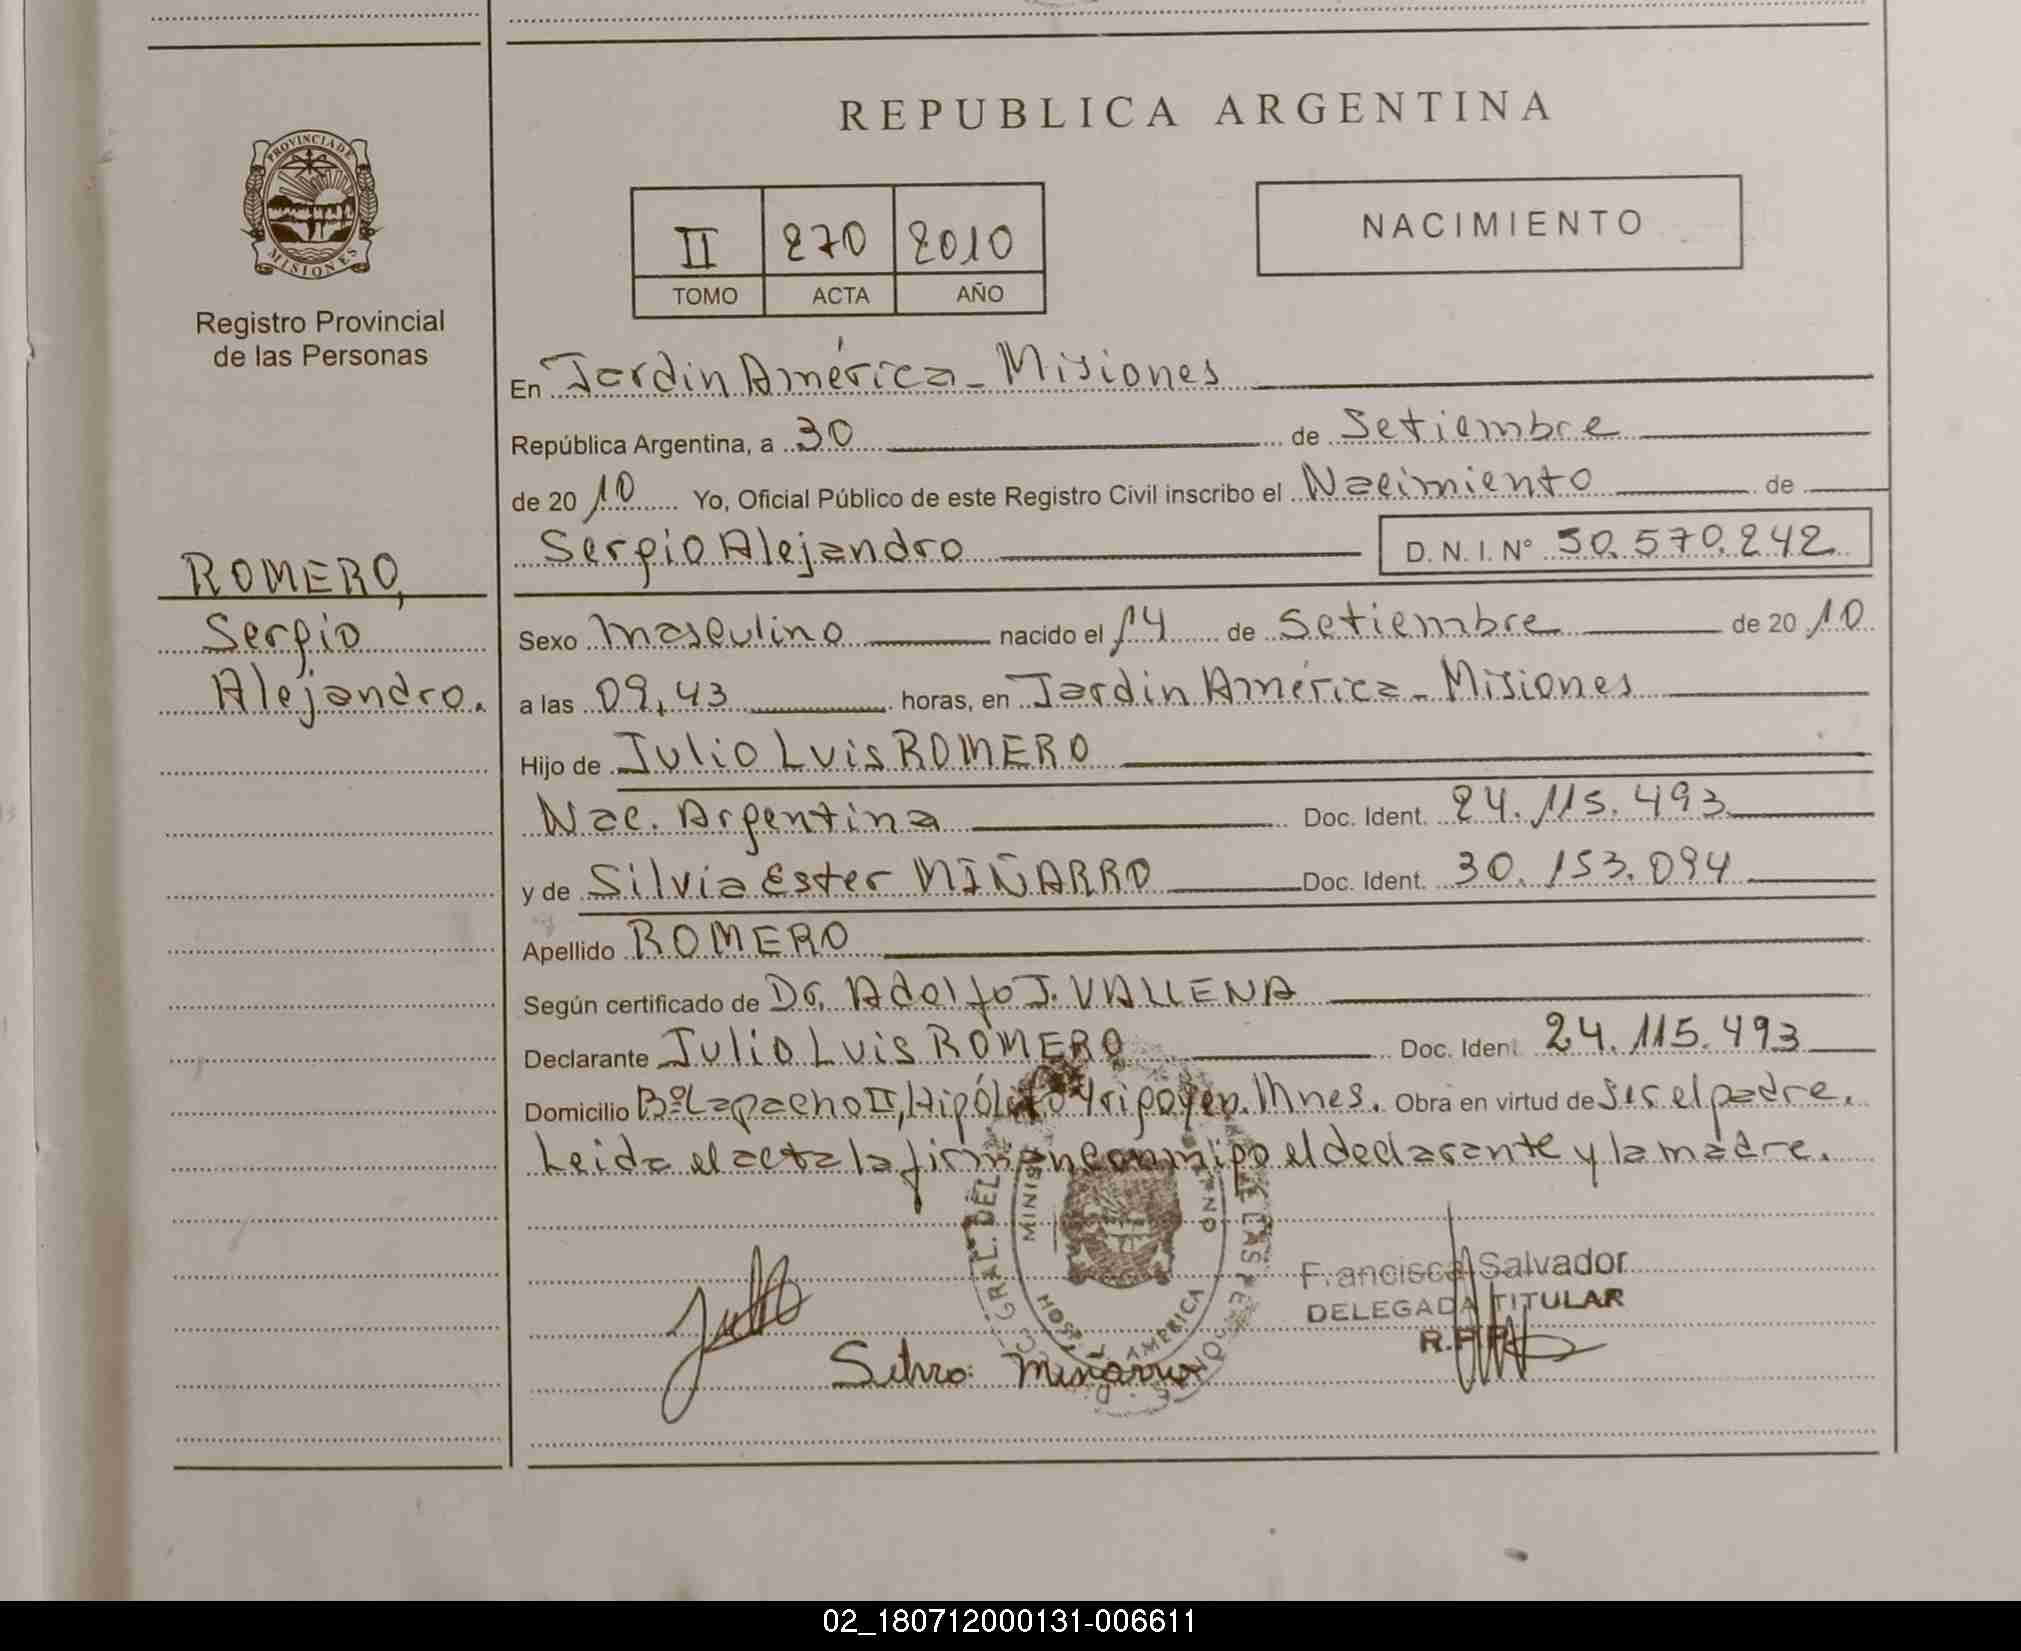 REPUBLICA ARGENTINA
PROVINCIA DE
MISIONES
Registro Provincial
de las Personas
II 270 2010
TOMO ACTA AÑO
NACIMIENTO
En Jardin América - Misiones
República Argentina, a 30 de Setiembre
de 2010 Yo, Oficial Público de este Registro Civil inscribo el Nacimiento de
Sergio Alejandro D.N.I. N° 50.570.242
ROMERO,
Sergio
Alejandro.
Sexo masculino nacido el 14 de Setiembre de 2010
a las 09,43 horas, en Jardin América - Misiones
Hijo de Julio Luis ROMERO
Nac. Argentina Doc. Ident. 24.115.493
y de Silvia Ester MIÑARRO Doc. Ident. 30.153.094
Apellido ROMERO
Según certificado de Dr. Adolfo J. VALLENA
Declarante Julio Luis ROMERO Doc. Ident. 24.115.493
Domicilio B° Lapacho II, Hipólito Yrigoyen. Mnes. Obra en virtud de ser el padre.
Leida el acta la firman conmigo el declarante y la madre.
Francisca Salvador
DELEGADA TITULAR
R.P.P.
Miñarro
AMERICA
02_180712000131-006611